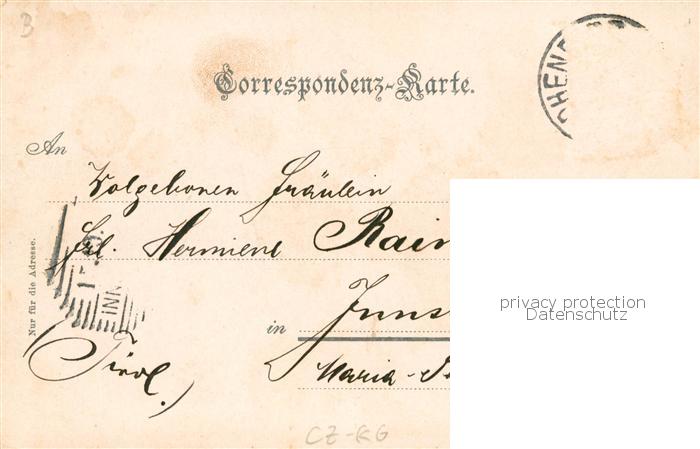 B
Correspondenz-Karte.
An
Wolgebornen Fräulein
Frl. Hermiene Rain
in Inns
Maria-
(Tirol.)
Nur für die Adresse.
INN
CZ-KG
privacy protection
Datenschutz